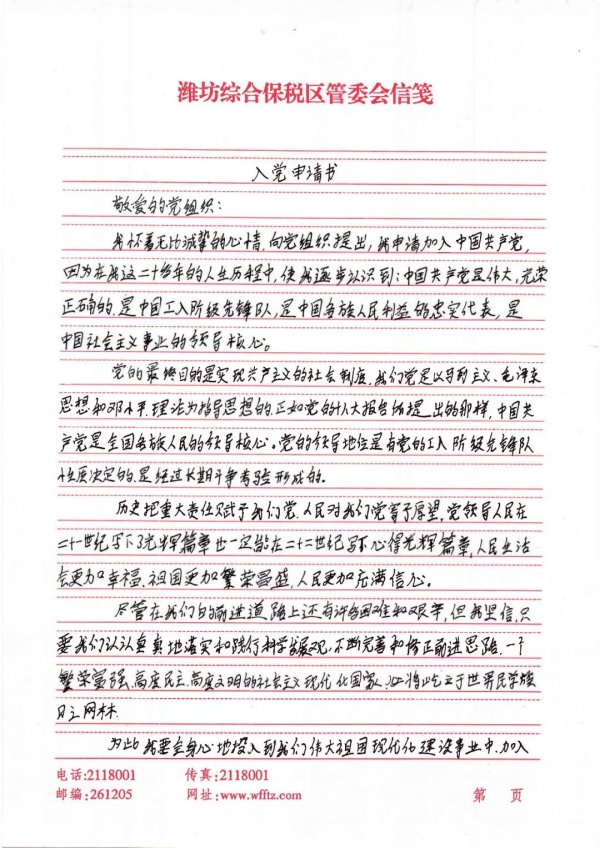 潍坊综合保税区管委会信笺
入党申请书
敬爱的党组织：
我怀着无比诚挚的心情，向党组织提出，我申请加入中国共产党，
因为在我这二十多年的人生历程中，使我逐步认识到：中国共产党是伟大，光荣
正确的，是中国工人阶级先锋队，是中国各族人民利益的忠实代表，是
中国社会主义事业的领导核心。
党的最终目的是实现共产主义的社会制度，我们党是以马列主义、毛泽东
思想和邓小平理论为指导思想的，正如党的十八大报告所提出的那样，中国共
产党是全国各族人民的领导核心。党的领导地位是有党的工人阶级先锋队
性质决定的，是经过长期斗争考验形成的。
历史把重大责任赋于我们党，人民对我们党寄予厚望，党领导人民在
二十一世纪写下了光辉篇章也一定能在二十二世纪写下心得光辉篇章，人民生活
会更加幸福、祖国更加繁荣昌盛，人民更加充满信心。
尽管在我们的前进道路上还有许多困难和艰辛，但我坚信，只
要我们认认真真地落实和践行科学发展观，不断完善和修正前进思路，一个
繁荣富强、高度民主、高度文明的社会主义现代化国家，必将屹立于世界民学族
之林
为此我要全身心地投入到我们伟大祖国现代化建设事业中，加入
电话:2118001 传真:2118001
邮编:261205 网址:www.wfftz.com 第 页